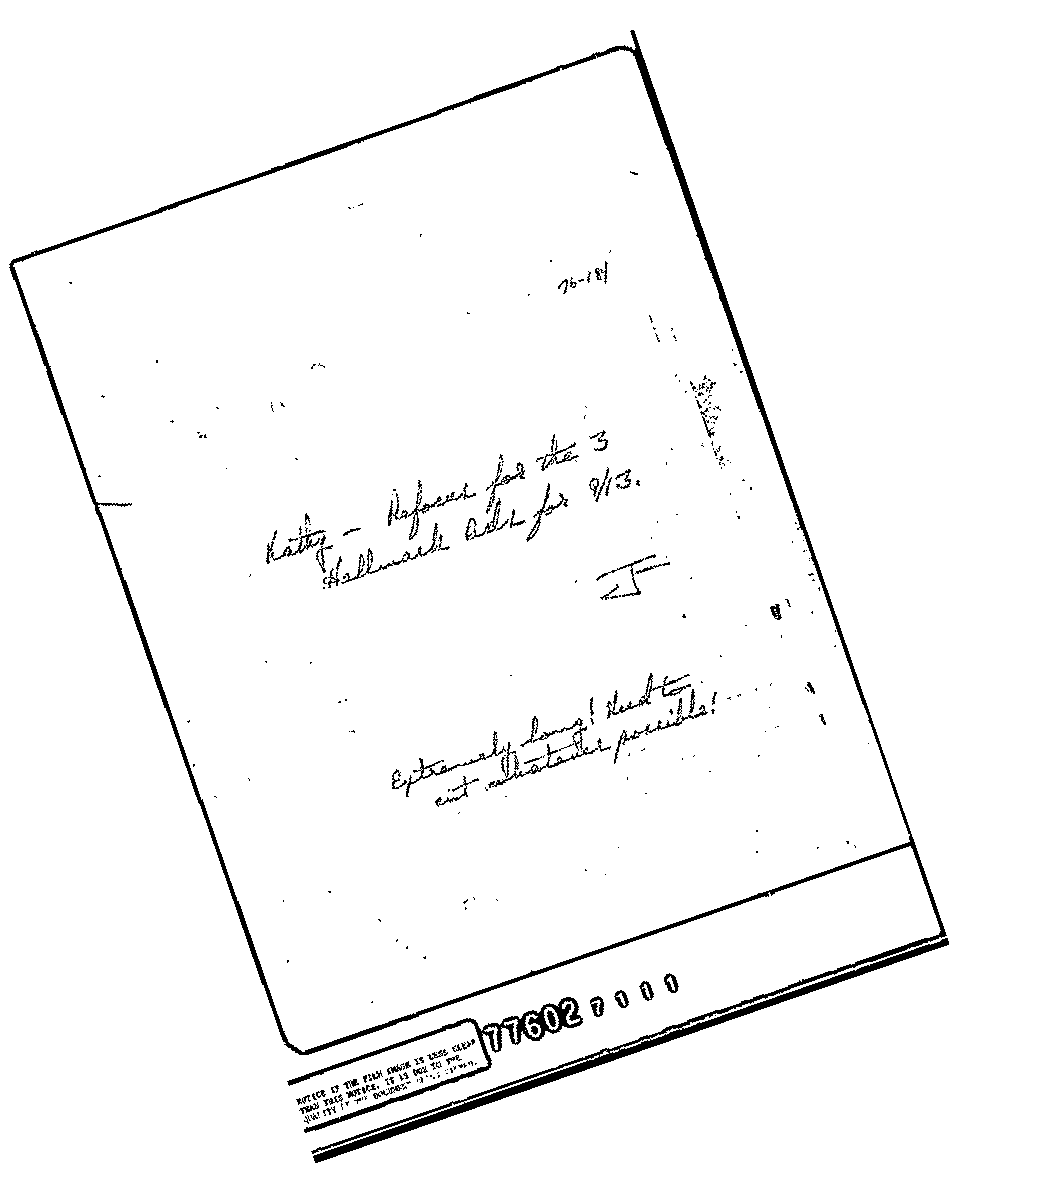 76-181
Kathy - Refocus for the 3
Hallmark Ads for 9/13.
J
Extremely long! Need to
cut whatever possible!
77602 7 1 0 0
NOTICE IF THE FILM IMAGE IS LESS CLEAR
THAN THIS NOTICE, IT IS DUE TO THE
QUALITY OF THE DOCUMENT